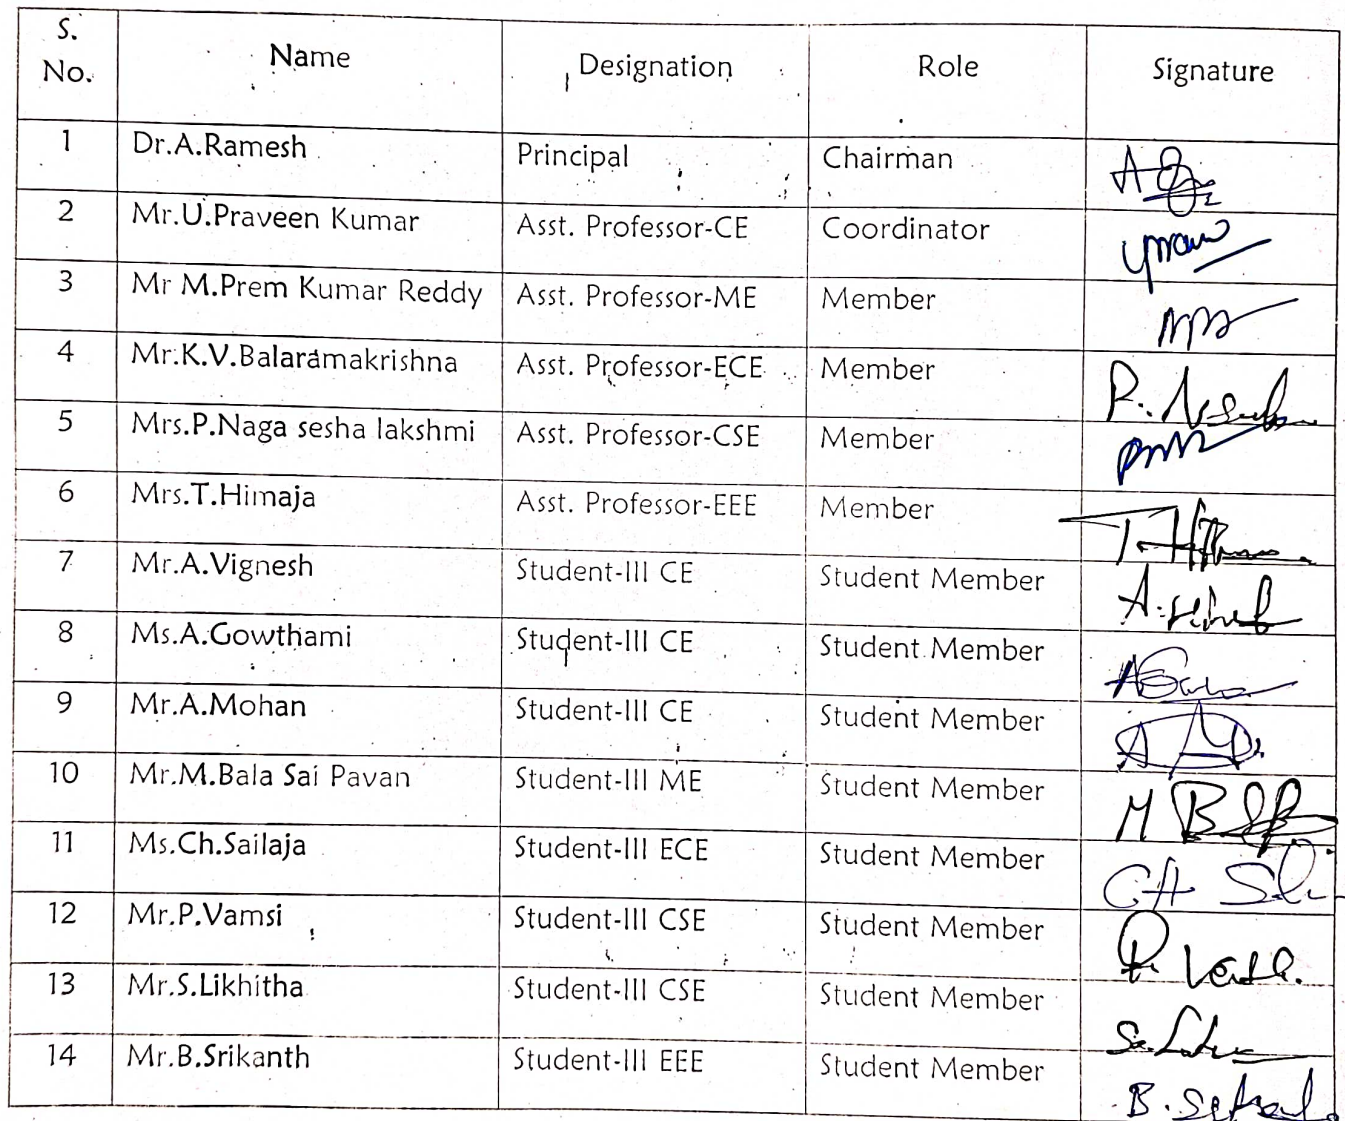 S. No. Name Designation Role Signature
1 Dr.A.Ramesh Principal Chairman
2 Mr.U.Praveen Kumar Asst. Professor-CE Coordinator
3 Mr M.Prem Kumar Reddy Asst. Professor-ME Member
4 Mr.K.V.Balaramakrishna Asst. Professor-ECE Member
5 Mrs.P.Naga sesha lakshmi Asst. Professor-CSE Member
6 Mrs.T.Himaja Asst. Professor-EEE Member
7 Mr.A.Vignesh Student-III CE Student Member
8 Ms.A.Gowthami Student-III CE Student Member
9 Mr.A.Mohan Student-III CE Student Member
10 Mr.M.Bala Sai Pavan Student-III ME Student Member
11 Ms.Ch.Sailaja Student-III ECE Student Member
12 Mr.P.Vamsi Student-III CSE Student Member
13 Mr.S.Likhitha Student-III CSE Student Member
14 Mr.B.Srikanth Student-III EEE Student Member